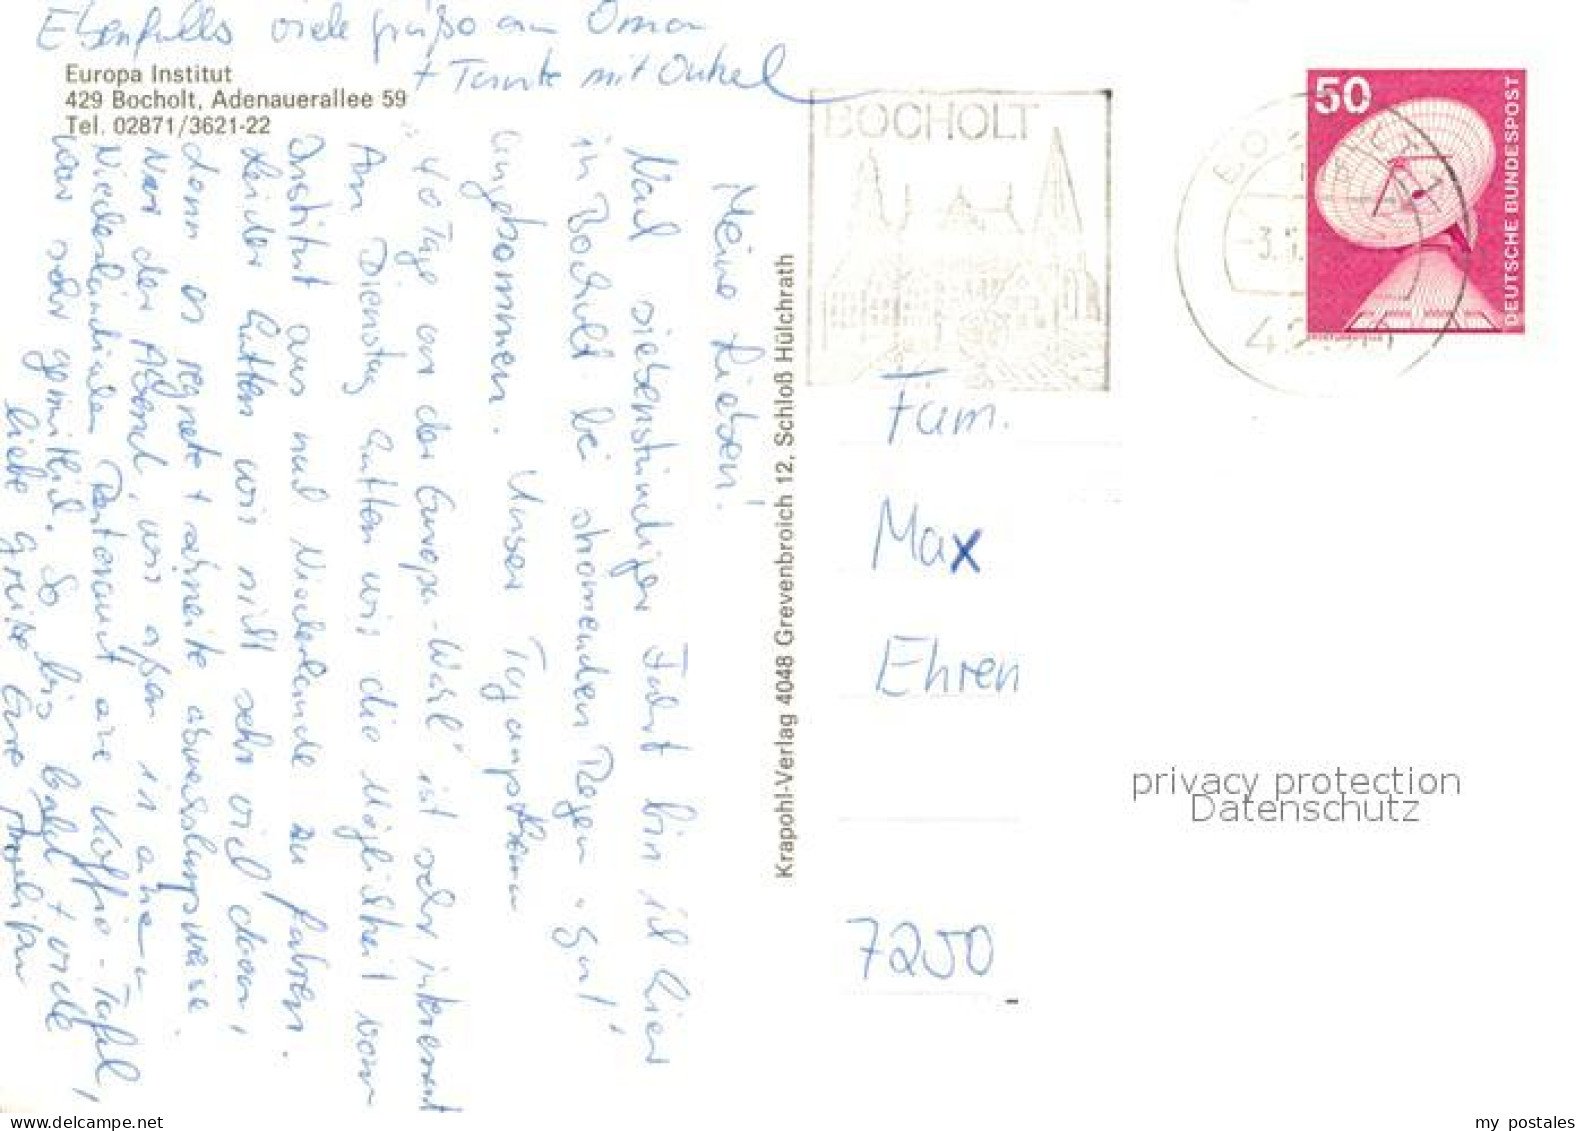 Ebenfalls viele Grüße an Oma
+ Tante mit Onkel
Europa Institut
429 Bocholt, Adenauerallee 59
Tel. 02871/3621-22
Meine Lieben!
Nach siebenstündiger Fahrt bin ich hier
in Bocholt bei strömenden Regen "gut"
angekommen. Unser Tagungsthema
"40 Tage vor der Europa-Wahl" ist sehr interessant
Am Dienstag hatten wir die Möglichkeit vom
Institut aus nach Niederlande zu fahren.
Leider hatten wir nicht sehr viel davon,
denn es regnete + schneite abwechslungsweise.
Nur der Abend, wir aßen in einem
Niederländischen Restaurant eine Koffie-Tafel,
war sehr gemütlich. So bis bald + viele
liebe Grüße Eure
Krapohl-Verlag 4048 Grevenbroich 12, Schloß Hülchrath
BOCHOLT
50
DEUTSCHE BUNDESPOST
Fam.
Max
Ehren
7250
privacy protection
Datenschutz
my postales